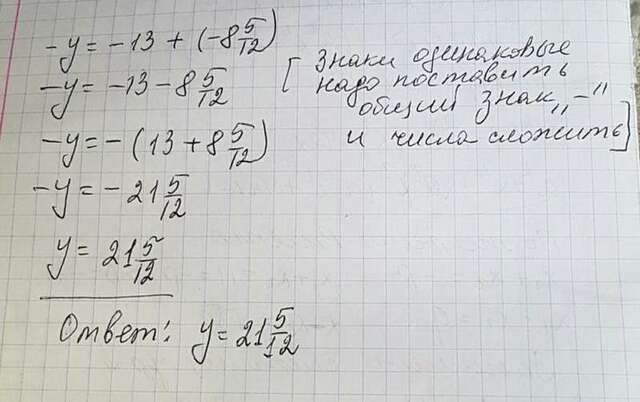 -y = -13 + (-8 5/12)
-y = -13 - 8 5/12
[ Знаки одинаковые
надо поставить
общий знак „-"
и числа сложить ]
-y = - (13 + 8 5/12)
-y = - 21 5/12
y = 21 5/12
Ответ: y = 21 5/12